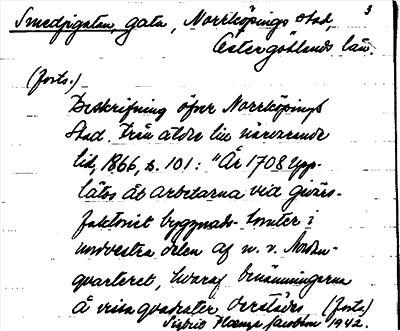 3
Smedjegatan, gata, Norrköpings stad,
Östergötlands län.
(forts.)
Beskrifning öfver Norrköpings
Stad. Från äldre till närvarande
tid, 1866, s. 101: "År 1708 upp-
läts åt arbetarna vid gevärs-
faktoriet byggnads-tomter i
nordvestra delen af n. v. Nordan-
quarteret, hvaraf benämningarna
å vissa quadrater derstädes (forts.)
Sigbrit Plænge Jacobson 1942.